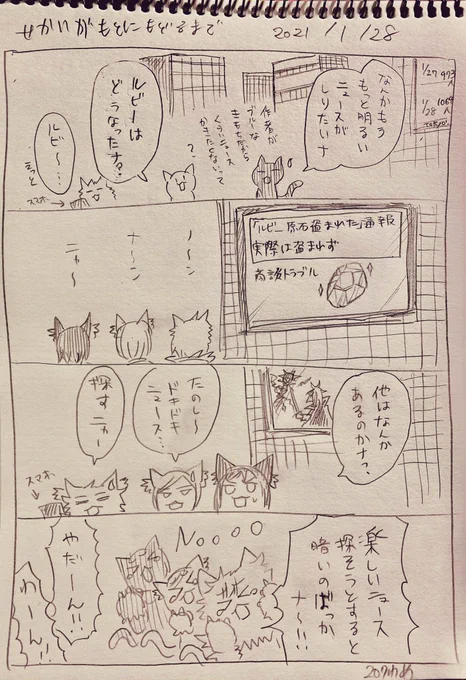 せかいがもとにもどるまで
2021/1/28
1/27 973人
1/28 1064人
なんかもう
もっと明るい
ニュースが
しりたいナ
作者が
ブルーな
きもちだから
くらいニュース
かきたくないって
?
ルビーは
どうなったナ?
ルビ〜…
スマホ
「ルビー原石盗まれた」通報
実際は盗まれず
商談トラブル
〜ン
ナ〜ン
ニャ〜
他はなんか
あるのかナ?
たのし〜
ドキドキ
ニュース…
探すニャー
スマホ
楽しいニュース
探そうとすると
暗いのばっか
ナ〜!!
NOOOO
やだーん!!
わーん!!